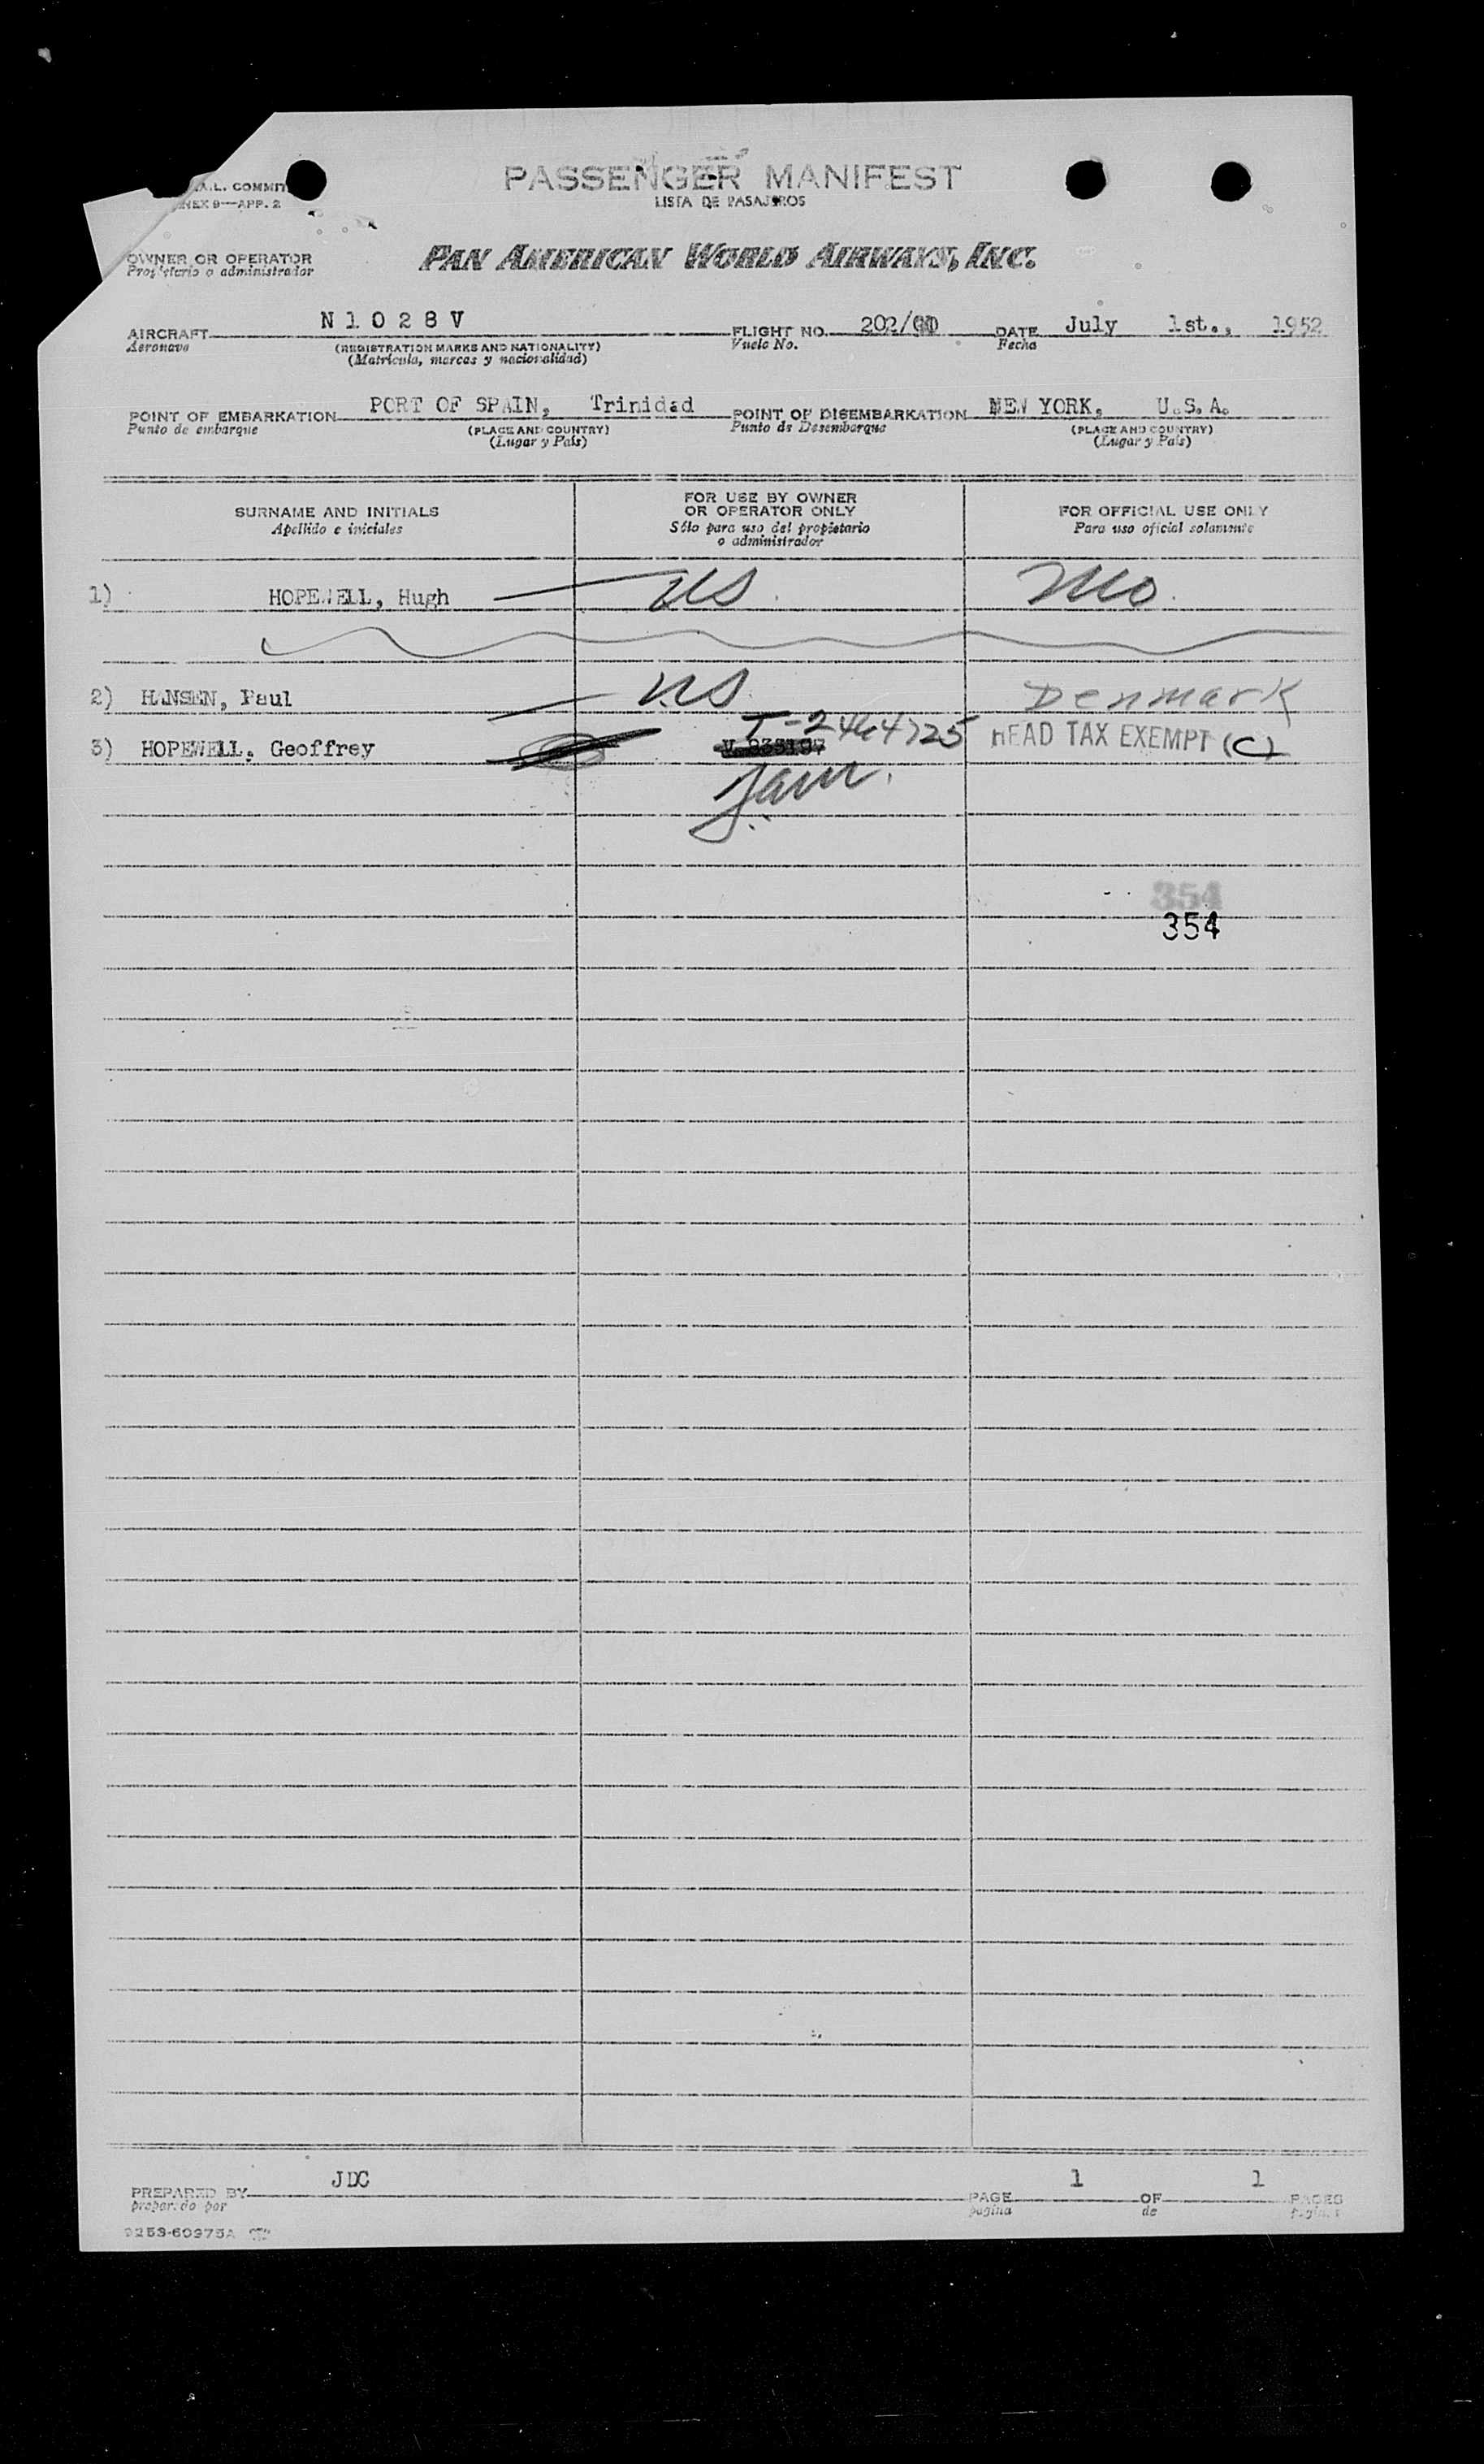 A.L. COMMIT
NEX 9—APP. 2
PASSENGER MANIFEST
LISTA DE PASAJEROS
OWNER OR OPERATOR
Propietario o administrador
PAN AMERICAN WORLD AIRWAYS, INC.
AIRCRAFT N1028V FLIGHT NO. 202/ DATE July 1st., 1952
Aeronave (REGISTRATION MARKS AND NATIONALITY) Vuelo No. Fecha
(Matrícula, marcas y nacionalidad)
POINT OF EMBARKATION PORT OF SPAIN, Trinidad POINT OF DISEMBARKATION NEW YORK, U.S.A.
Punto de embarque (PLACE AND COUNTRY) Punto de Desembarque (PLACE AND COUNTRY)
(Lugar y País) (Lugar y País)
SURNAME AND INITIALS FOR USE BY OWNER OR OPERATOR ONLY FOR OFFICIAL USE ONLY
Apellido e iniciales Sólo para uso del propietario o administrador Para uso oficial solamente
1) HOPEWELL, Hugh US Mo
2) HANSEN, Paul US Denmark
3) HOPEWELL, Geoffrey T-2464725 HEAD TAX EXEMPT (C)
Jam.
354
354
PREPARED BY JDC PAGE 1 OF 1 PAGES
preparado por página de páginas
9253-60975A